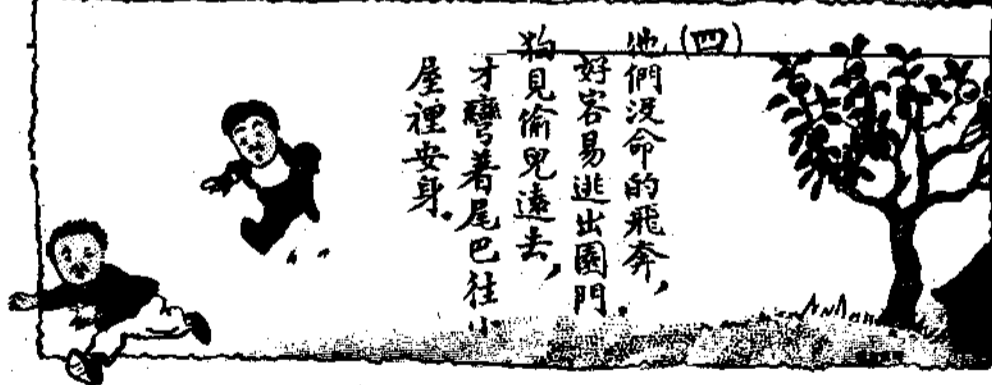 (四)
他們沒命的飛奔，
好容易逃出園門.
狗見偷兒遠去，
才彎着尾巴往小
屋裡安身.